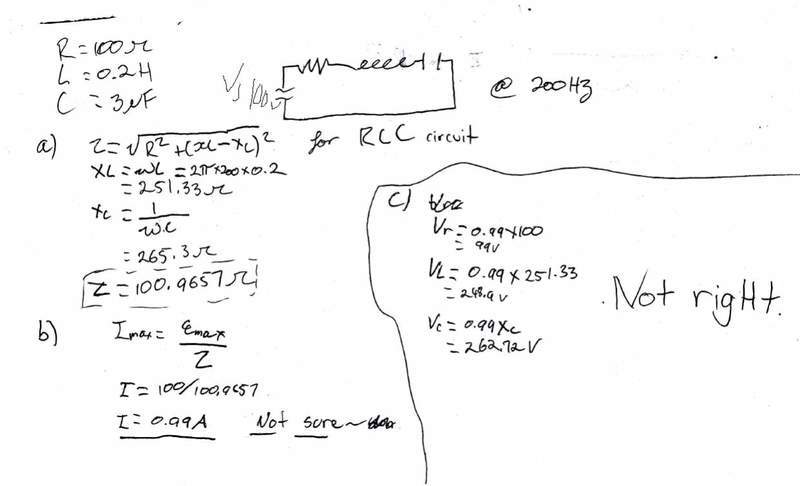 R = 100 Ω
L = 0.2H
C = 3 μF
Vs 100v
@ 200Hz
a) Z = √R² + (XL - XC)² for RLC circuit
XL = ωL = 2π×200×0.2
= 251.33 Ω
XC = 1/ω.C
= 265.3 Ω
Z = 100.9657 Ω
b) Imax = εmax/Z
I = 100/100.9657
I = 0.99A Not sure ~
c)
Vr = 0.99×100
= 99V
VL = 0.99 × 251.33
= 248.9 V
Vc = 0.99 Xc
= 262.72 V
. Not right.